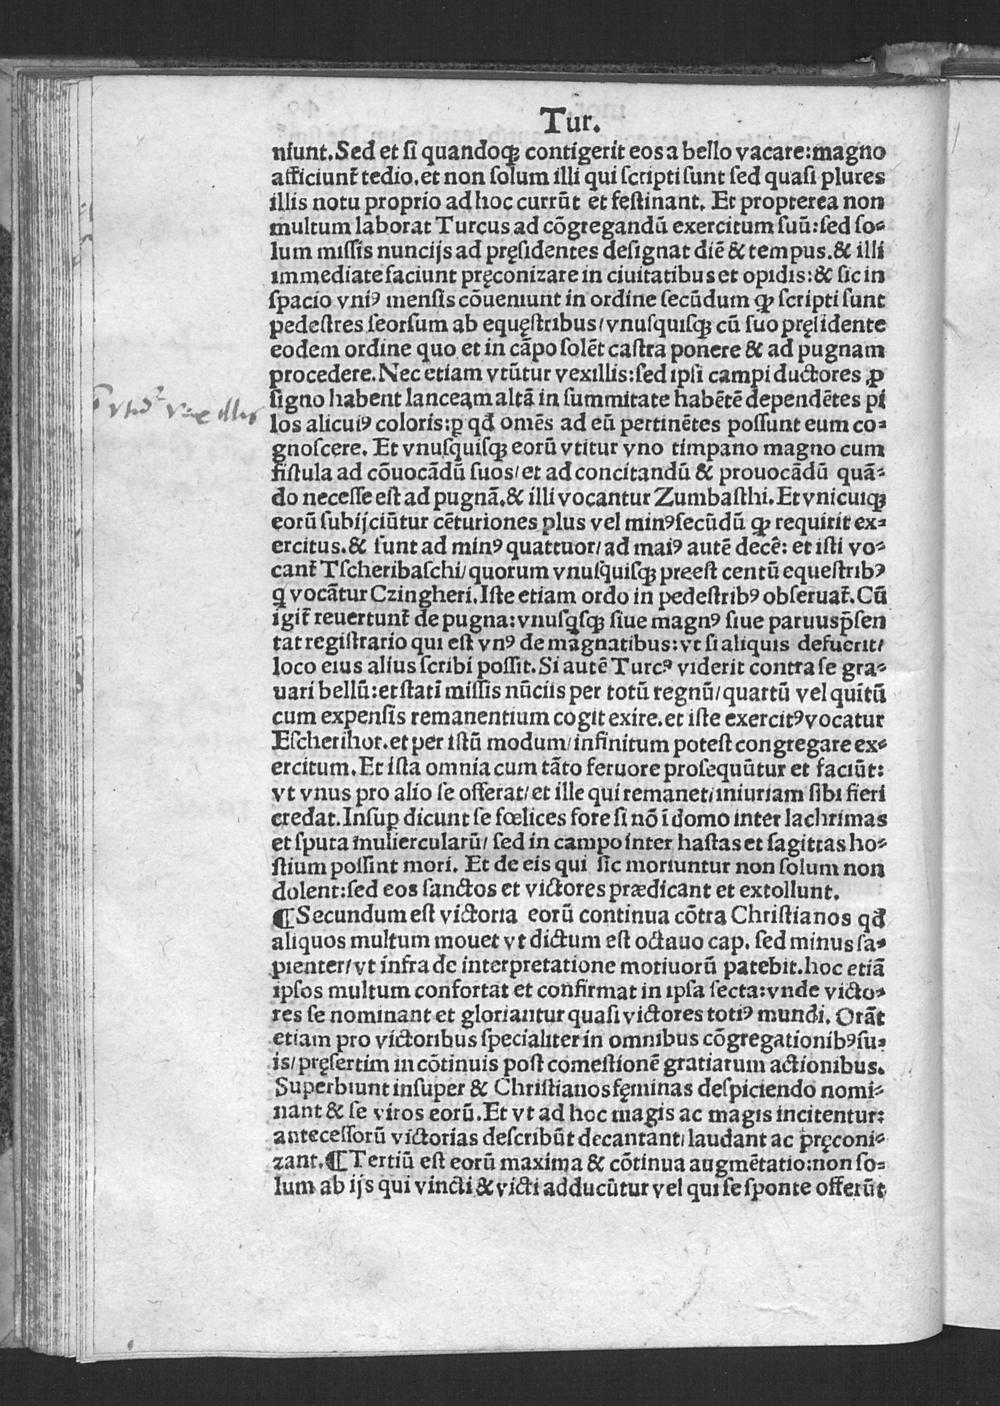 Tur.
niunt. Sed et si quandoqꝫ contigerit eos a bello vacare: magno
afficiunt̃ tedio. et non solum illi qui scripti sunt sed quasi plures
illis notu proprio ad hoc currūt et festinant. Et propterea non
multum laborat Turcus ad cōgregandū exercitum suū: sed so-
lum missis nuncijs ad pręsidentes designat diē & tempus. & illi
immediate faciunt pręconizare in ciuitatibus et opidis: & sic in
spacio vniꝰ mensis cōueniunt in ordine secūdum ꝙ scripti sunt
pedestres seorsum ab equęstribus/ vnusquisqꝫ cū suo pręsidente
eodem ordine quo et in cāpo solēt castra ponere & ad pugnam
procedere. Nec etiam vtūtur vexillis: sed ipsi campi ductores ꝓ
signo habent lanceam altā in summitate habētē dependētes pi
los alicuiꝰ coloris: ꝑ qđ omēs ad eū pertinētes possunt eum co-
gnoscere. Et vnusquisqꝫ eorū vtitur vno timpano magno cum
fistula ad cōuocādū suos/ et ad concitandū & prouocādū quā-
do necesse est ad pugnā. & illi vocantur Zumbasthi. Et vnicuiqꝫ
eorū subijciūtur cēturiones plus vel minꝰ secūdū ꝙ requirit ex-
ercitus. & sunt ad minꝰ quattuor/ ad maiꝰ autē decē: et isti vo-
cant̃ Tscheribaschi/ quorum vnusquisqꝫ preest centū equestribꝰ
q̃ vocātur Czingheri. Iste etiam ordo in pedestribꝰ obseruat̃. Cū
igit̃ reuertunt̃ de pugna: vnusq̃sqꝫ siue magnꝰ siue paruus p̃sen
tat registrario qui est vnꝰ de magnatibus: vt si aliquis defuerit/
loco eius alius scribi possit. Si autē Turcꝰ viderit contra se gra-
uari bellū: et statī missis nūciis per totū regnū/ quartū vel quītū
cum expensis remanentium cogit exire. et iste exercitꝰ vocatur
Escherihor. et per istū modum/ infinitum potest congregare ex-
ercitum. Et ista omnia cum tāto feruore prosequūtur et faciūt:
vt vnus pro alio se offerat/ et ille qui remanet/ iniuriam sibi fieri
credat. Insuꝑ dicunt se fœlices fore si nō ī domo inter lachrimas
et sputa muliercularū/ sed in campo inter hastas et sagittas ho-
stium possint mori. Et de eis qui sic moriuntur non solum non
dolent: sed eos sanctos et victores prædicant et extollunt.
¶ Secundum est victoria eorū continua cōtra Christianos qđ
aliquos multum mouet vt dictum est octauo cap. sed minus sa-
pienter/ vt infra de interpretatione motiuorū patebit. hoc etiā
ipsos multum confortat et confirmat in ipsa secta: vnde victo-
res se nominant et gloriantur quasi victores totiꝰ mundi. Orāt
etiam pro victoribus specialiter in omnibus cōgregationibꝰ su-
is/ pręsertim in cōtinuis post comestionē gratiarum actionibus.
Superbiunt insuper & Christianos fęminas despiciendo nomi-
nant & se viros eorū. Et vt ad hoc magis ac magis incitentur:
antecessorū victorias describūt decantant/ laudant ac pręconi-
zant. ¶ Tertiū est eorū maxima & cōtinua augmētatio: non so-
lum ab ijs qui vincti & victi adducūtur vel qui se sponte offerūt
vexillis